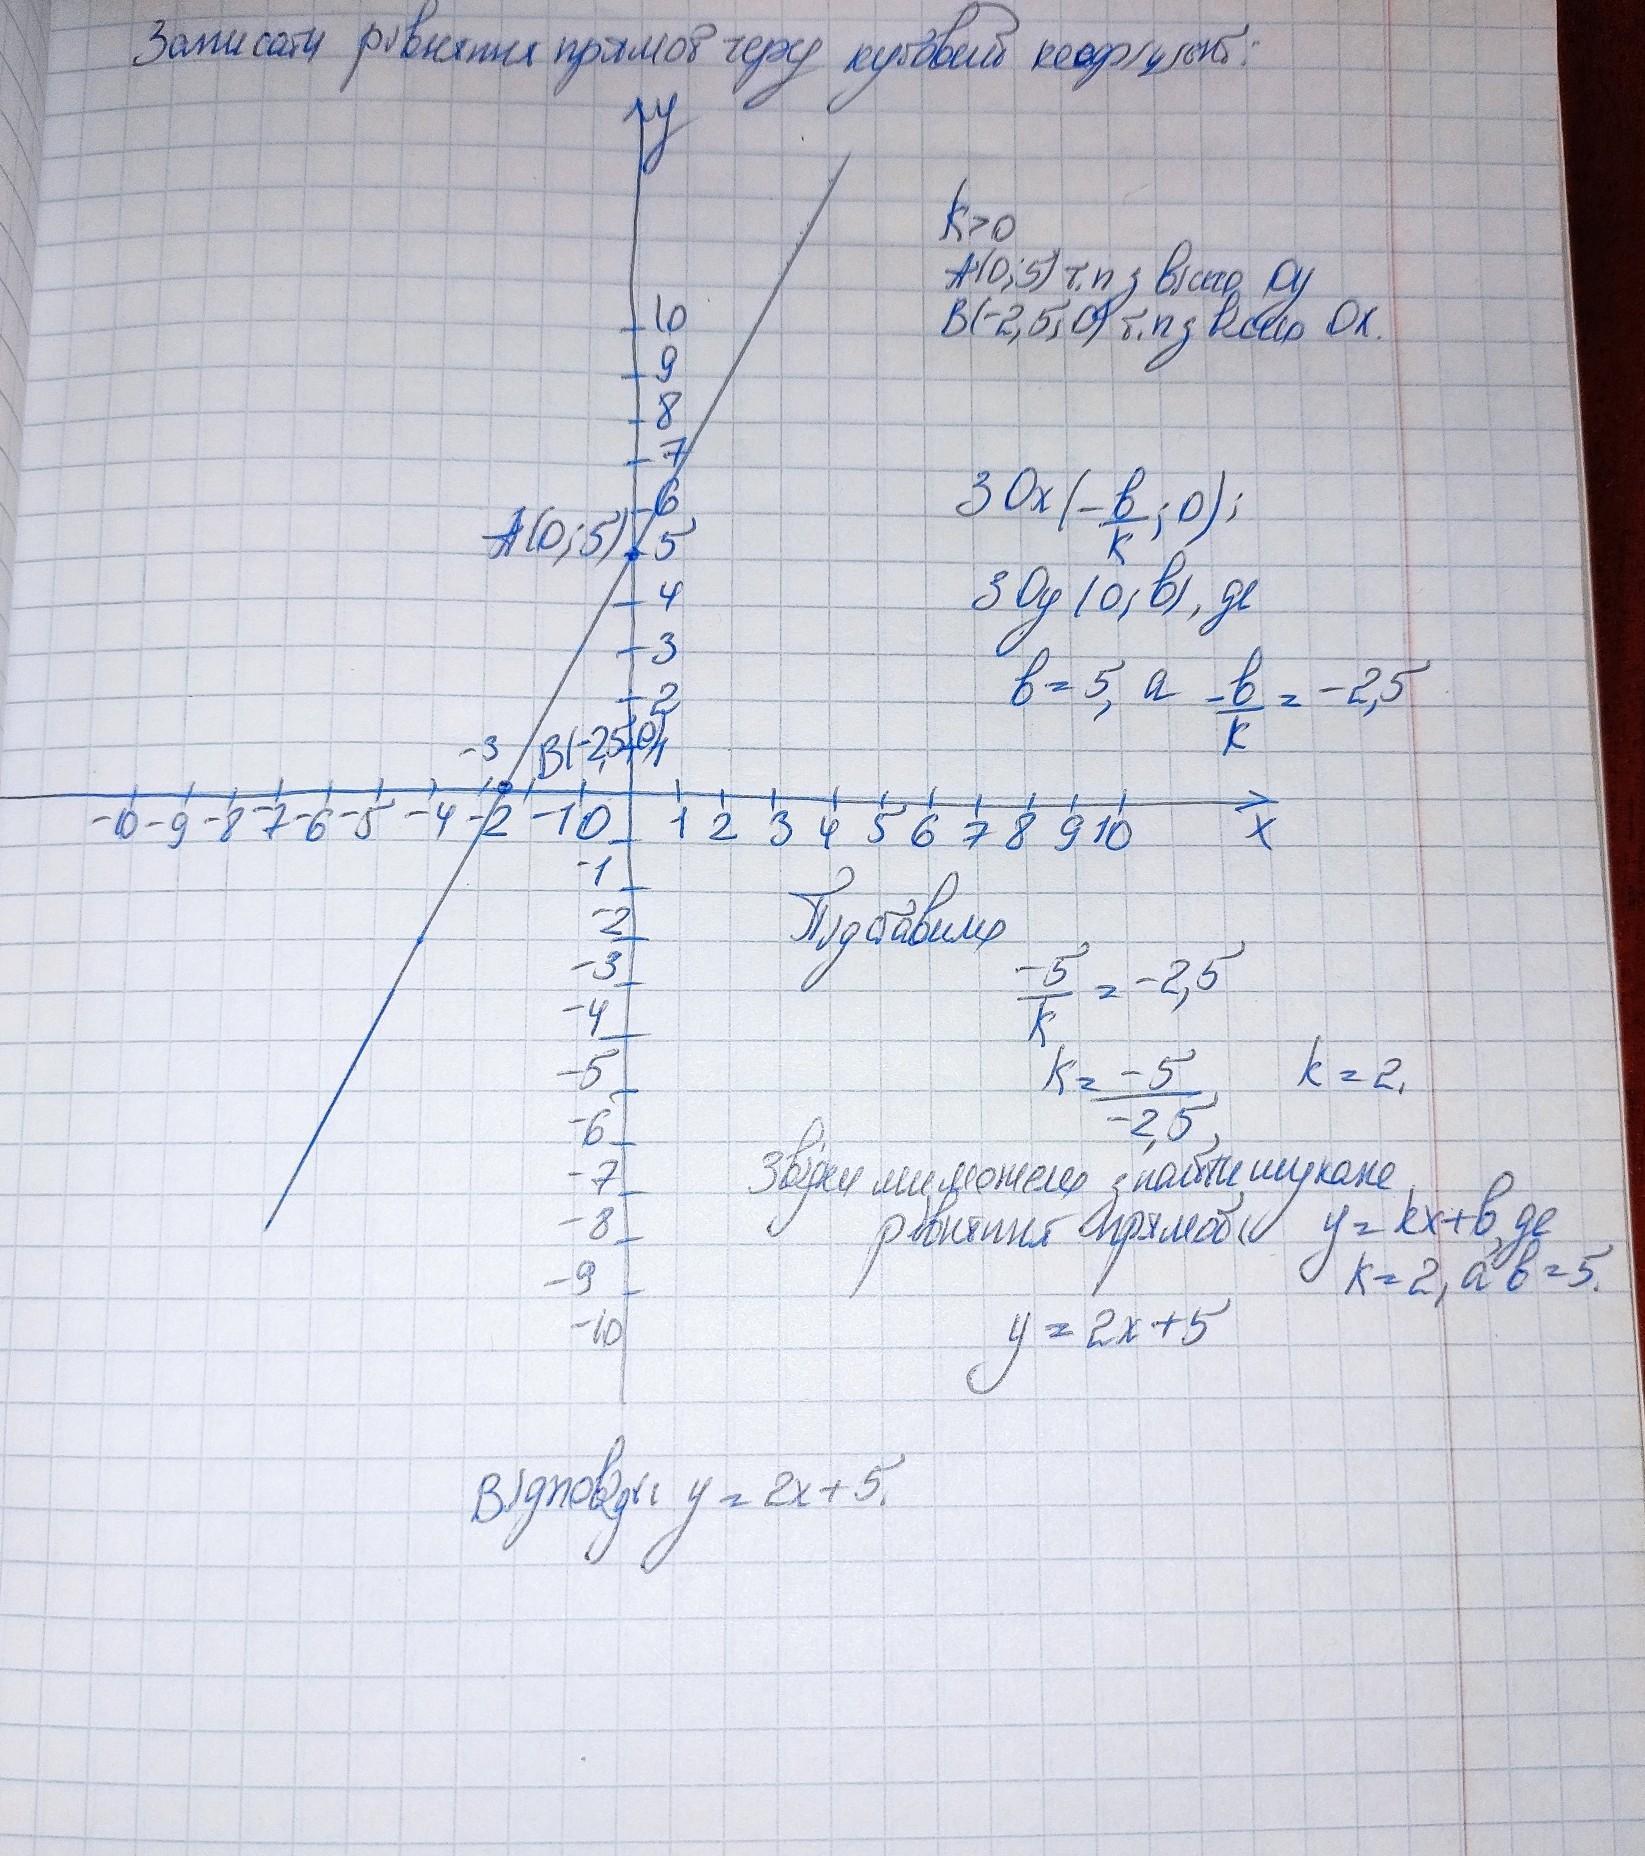 Записати рівняння прямої через кутовий коефіцієнт:
y
k>0
A(0;5) т.п з віссю Oy
B(-2,5;0) т.п з віссю Ox.
10
9
8
7
6
A(0;5) 5
4
3
2
-3 B(-2,5;0) 1
З Ox(-в/k;0);
З Oy(0;в), де
в=5, а -в/k = -2,5
-10 -9 -8 -7 -6 -5 -4 -2 -1 0 1 2 3 4 5 6 7 8 9 10 x
-1
-2
-3
-4
-5
-6
-7
-8
-9
-10
Підставимо
-5/k = -2,5
k = -5/-2,5, k = 2.
Звідки ми можемо знайти шукане
рівняння прямої: y = kx+в, де
k=2, а в=5.
y = 2x+5
Відповідь: y = 2x+5.